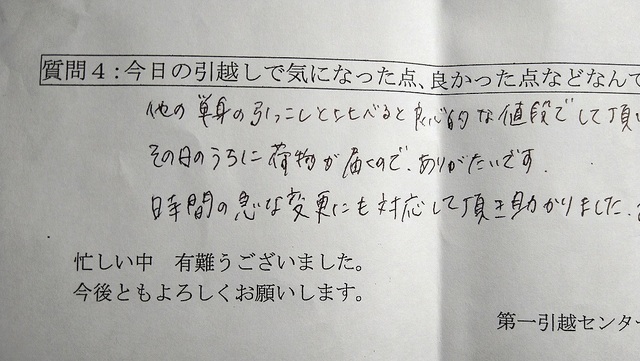 質問４：今日の引越しで気になった点、良かった点などなんで
他の単身の引っこしと比べると良心的な値段でして頂い
その日のうちに荷物が届くので、ありがたいです.
時間の急な変更にも対応して頂き助かりました.
忙しい中　有難うございました。
今後ともよろしくお願いします。
第一引越センター